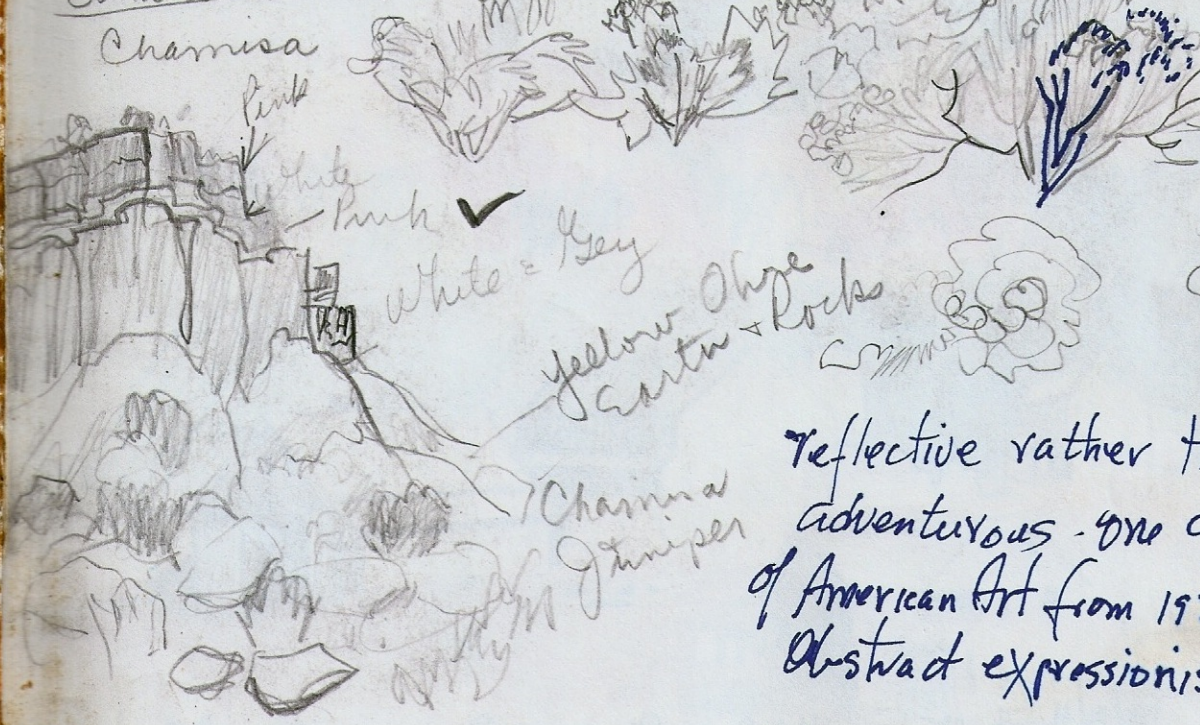 Chamisa
Pink
White
Pink
White & Grey
Yellow Ohre
Earth + Rocks
Chamisa
Juniper
reflective rather
adventurous - one
of American Art from 19
Abstract expressionis